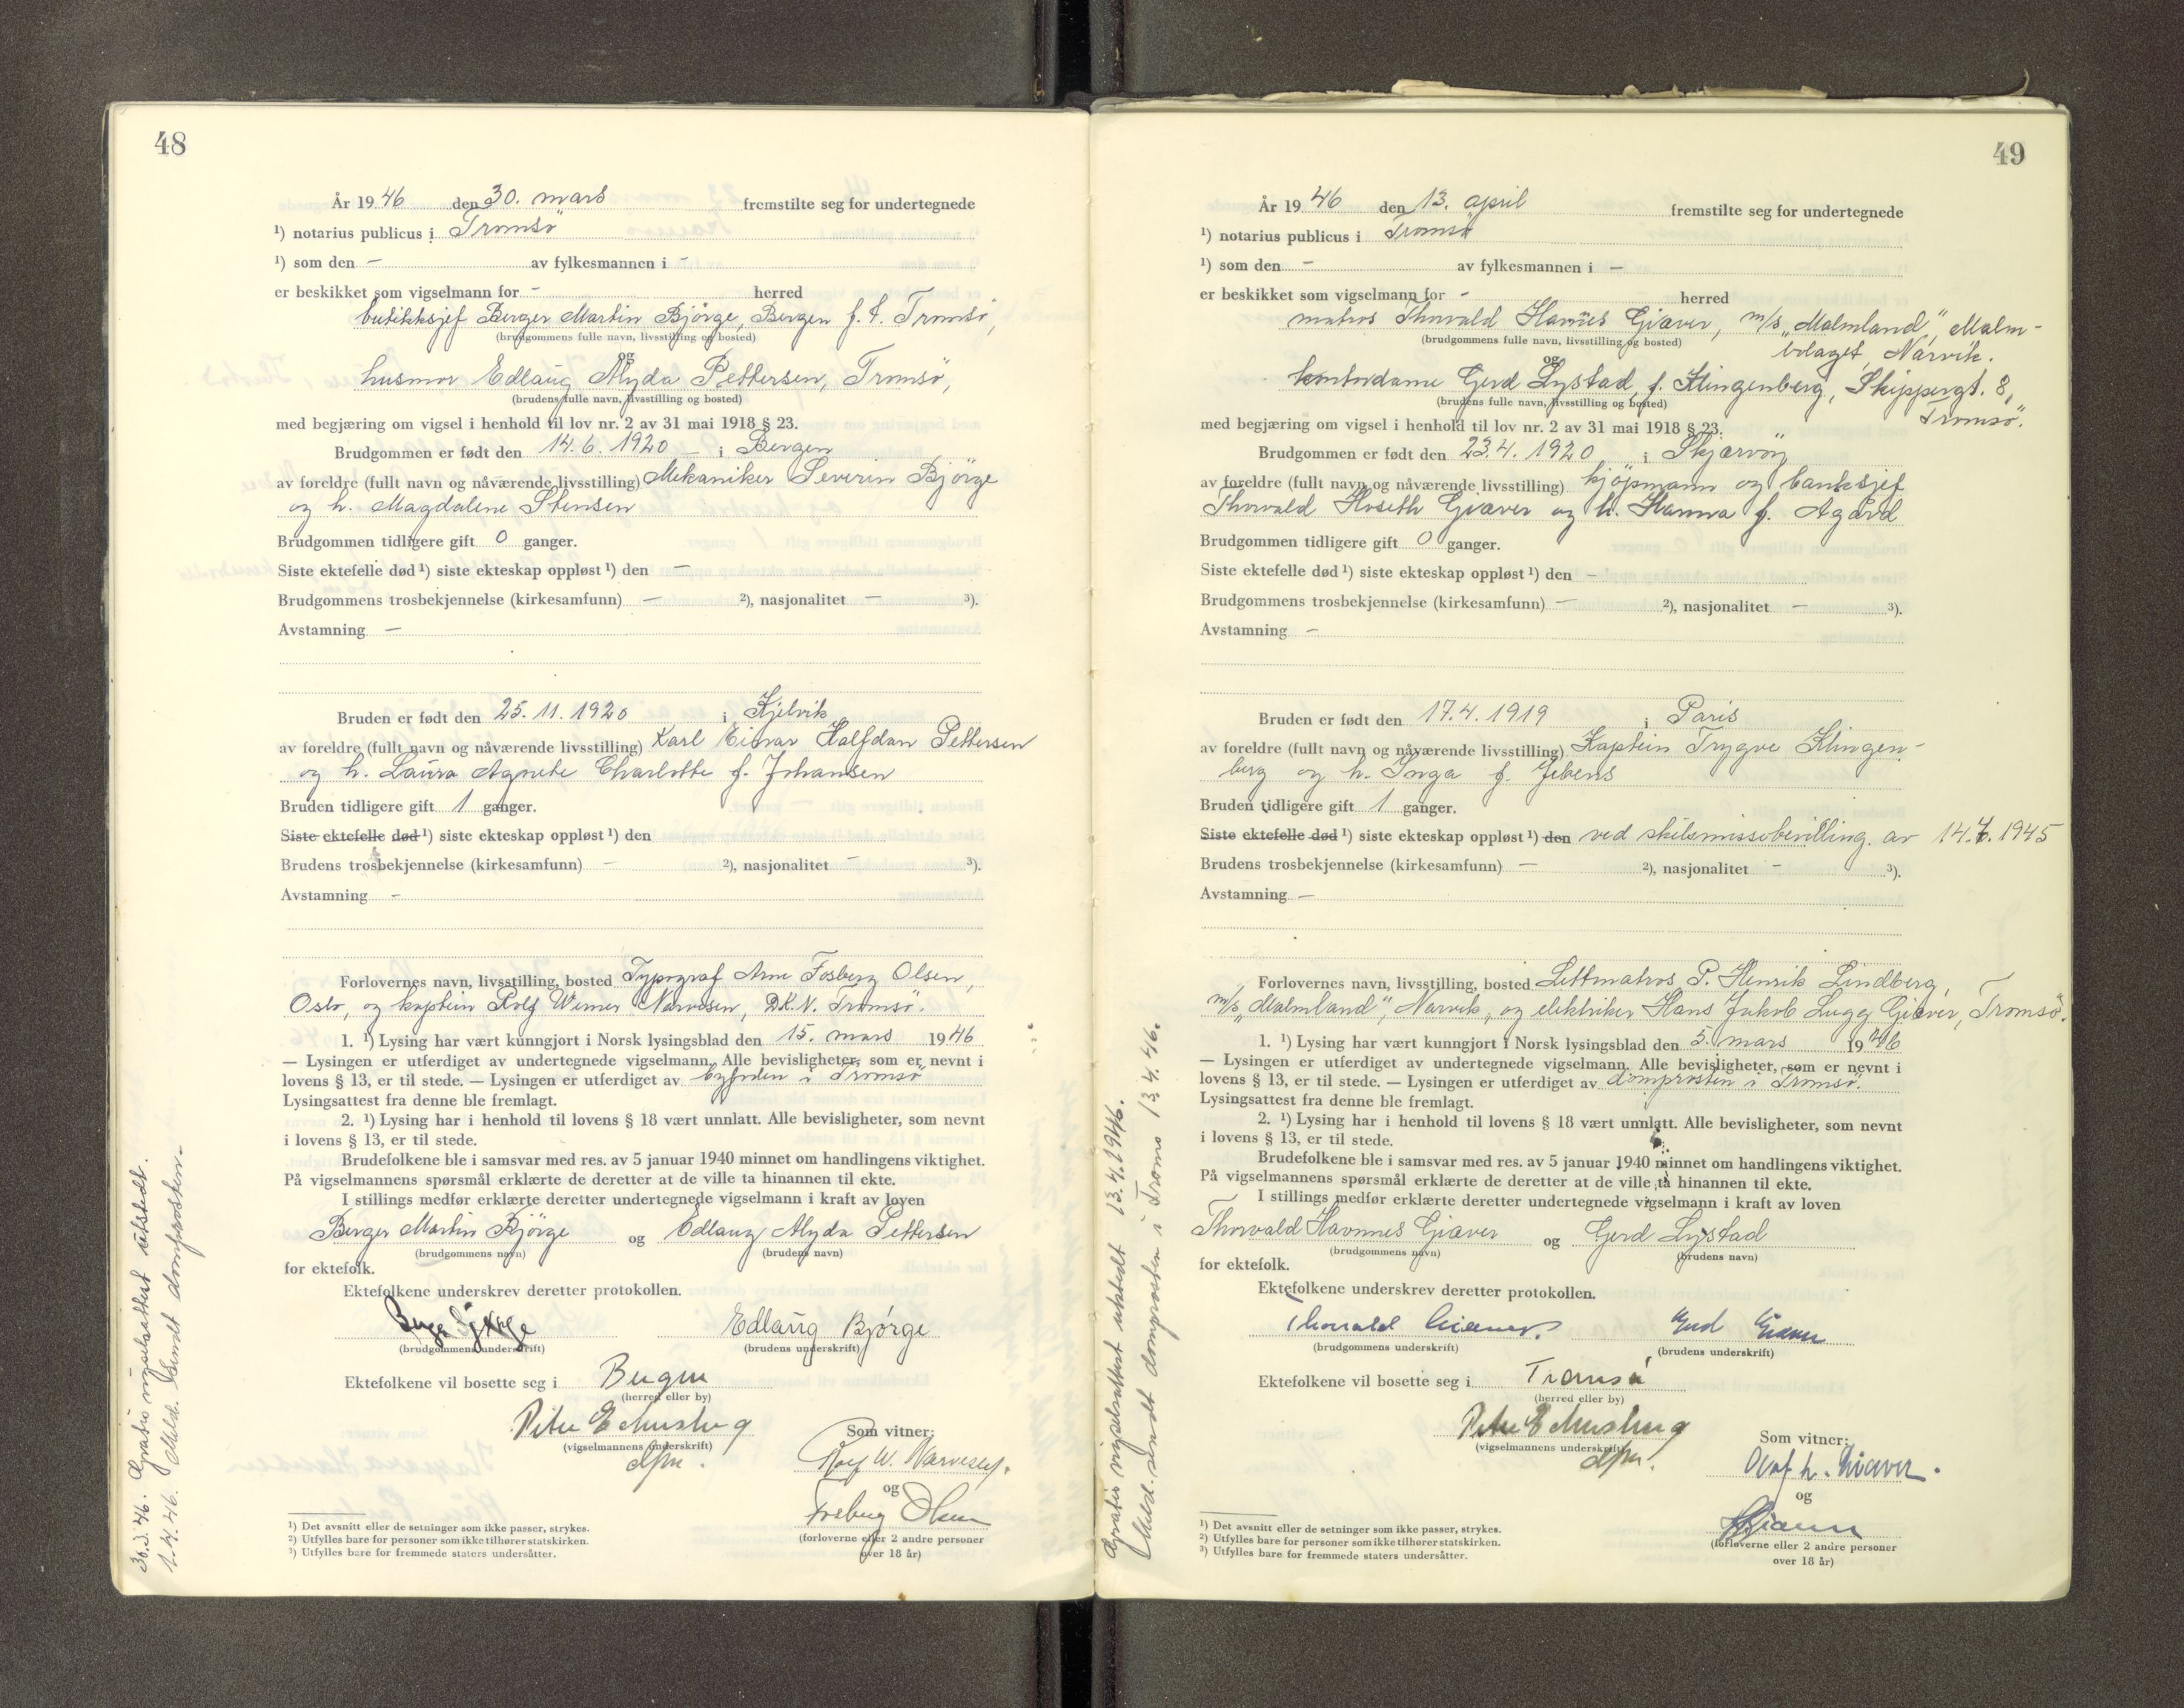 48
År 1946 den 30. mars fremstilte seg for undertegnede
¹) notarius publicus i Tromsö
¹) som den – av fylkesmannen i –
er beskikket som vigselmann for – herred
butikksjef Berger Martin Bjørge, Bergen f. t. Tromsö,
(brudgommens fulle navn, livsstilling og bosted)
og
husmor Edlaug Alyda Pettersen, Tromsö,
(brudens fulle navn, livsstilling og bosted)
med begjæring om vigsel i henhold til lov nr. 2 av 31 mai 1918 § 23.
Brudgommen er født den 14. 6. 1920 – i Bergen
av foreldre (fullt navn og nåværende livsstilling) Mekaniker Severin Bjørge
og h. Magdalene Stensen
Brudgommen tidligere gift 0 ganger.
Siste ektefelle død ¹) siste ekteskap oppløst ¹) den –
Brudgommens trosbekjennelse (kirkesamfunn) – ²), nasjonalitet – ³).
Avstamning –
Bruden er født den 25. 11. 1920 i Kjelvik
av foreldre (fullt navn og nåværende livsstilling) Karl Einar Halfdan Pettersen
og h. Laura Agnete Charlotte f. Johansen
Bruden tidligere gift 1 ganger.
Siste ektefelle død ¹) siste ekteskap oppløst ¹) den
Brudens trosbekjennelse (kirkesamfunn) – ²), nasjonalitet – ³).
Avstamning –
Forlovernes navn, livsstilling, bosted Typograf Arne Fosberg Olsen,
Oslo, og kaptein Rolf Werner Narvesen, D.K.N. Tromsö.
1. ¹) Lysing har vært kunngjort i Norsk lysingsblad den 15. mars 1946
— Lysingen er utferdiget av undertegnede vigselmann. Alle bevisligheter, som er nevnt i
lovens § 13, er til stede. — Lysingen er utferdiget av byfoden i Tromsö
Lysingsattest fra denne ble fremlagt.
2. ¹) Lysing har i henhold til lovens § 18 vært unnlatt. Alle bevisligheter, som nevnt
i lovens § 13, er til stede.
Brudefolkene ble i samsvar med res. av 5 januar 1940 minnet om handlingens viktighet.
På vigselmannens spørsmål erklærte de deretter at de ville ta hinannen til ekte.
I stillings medfør erklærte deretter undertegnede vigselmann i kraft av loven
Berger Martin Bjørge og Edlaug Alyda Pettersen
(brudgommens navn) (brudens navn)
for ektefolk.
Ektefolkene underskrev deretter protokollen.
Edlaug Bjørge
(brudgommens underskrift) (brudens underskrift)
Ektefolkene vil bosette seg i Bergen
(herred eller by)
(vigselmannens underskrift)
Som vitner:
Rolf W. Narvesen.
og
Fosberg Olsen
(forloverne eller 2 andre personer
over 18 år)
¹) Det avsnitt eller de setninger som ikke passer, strykes.
²) Utfylles bare for personer som ikke tilhører statskirken.
³) Utfylles bare for fremmede staters undersåtter.
30.3.46. Gratis vigselsattest utstedt.
1.4.46. Meld. sendt domprosten.
49
År 1946 den 13. april fremstilte seg for undertegnede
¹) notarius publicus i Tromsö
¹) som den – av fylkesmannen i –
er beskikket som vigselmann for – herred
matros Thorvald Havnnes Giæver, m/s „Malmland", Malm-
bolaget, Narvik.
(brudgommens fulle navn, livsstilling og bosted)
og
kontordame Gerd Lystad, f. Klingenberg, Skippergt. 8,
Tromsö.
(brudens fulle navn, livsstilling og bosted)
med begjæring om vigsel i henhold til lov nr. 2 av 31 mai 1918 § 23.
Brudgommen er født den 23.4. 1920 i Skjærvöy
av foreldre (fullt navn og nåværende livsstilling) kjöpmann og banksjef
Thorvald Hoseth Giæver og h. Hanna f. Agård
Brudgommen tidligere gift 0 ganger.
Siste ektefelle død ¹) siste ekteskap oppløst ¹) den –
Brudgommens trosbekjennelse (kirkesamfunn) – ²), nasjonalitet – ³).
Avstamning –
Bruden er født den 17.4. 1919 i Paris
av foreldre (fullt navn og nåværende livsstilling) Kaptein Trygve Klingen-
berg og h. Inga f. Jebens
Bruden tidligere gift 1 ganger.
Siste ektefelle død ¹) siste ekteskap oppløst ¹) den ved skilsmissebevilling. av 14.7.1945
Brudens trosbekjennelse (kirkesamfunn) – ²), nasjonalitet – ³).
Avstamning –
Forlovernes navn, livsstilling, bosted Lettmatros P. Henrik Lindberg,
m/s „Malmland", Narvik, og elektriker Hans Jakob Lugg Giæver, Tromsö.
1. ¹) Lysing har vært kunngjort i Norsk lysingsblad den 5. mars 1946
— Lysingen er utferdiget av undertegnede vigselmann. Alle bevisligheter, som er nevnt i
lovens § 13, er til stede. — Lysingen er utferdiget av domprosten i Tromsö.
Lysingsattest fra denne ble fremlagt.
2. ¹) Lysing har i henhold til lovens § 18 vært unnlatt. Alle bevisligheter, som nevnt
i lovens § 13, er til stede.
Brudefolkene ble i samsvar med res. av 5 januar 1940 minnet om handlingens viktighet.
På vigselmannens spørsmål erklærte de deretter at de ville ta hinannen til ekte.
I stillings medfør erklærte deretter undertegnede vigselmann i kraft av loven
Thorvald Havnnes Giæver og Gerd Lystad
(brudgommens navn) (brudens navn)
for ektefolk.
Ektefolkene underskrev deretter protokollen.
Thorvald Giæver. Gerd Giæver
(brudgommens underskrift) (brudens underskrift)
Ektefolkene vil bosette seg i Tromsö
(herred eller by)
(vigselmannens underskrift)
Som vitner:
Olaf h. Giæver.
og
(forloverne eller 2 andre personer
over 18 år)
¹) Det avsnitt eller de setninger som ikke passer, strykes.
²) Utfylles bare for personer som ikke tilhører statskirken.
³) Utfylles bare for fremmede staters undersåtter.
Gratis vigselsattest utstedt 13.4.1946.
Meld. sendt domprosten i Tromsö 13.4.46.